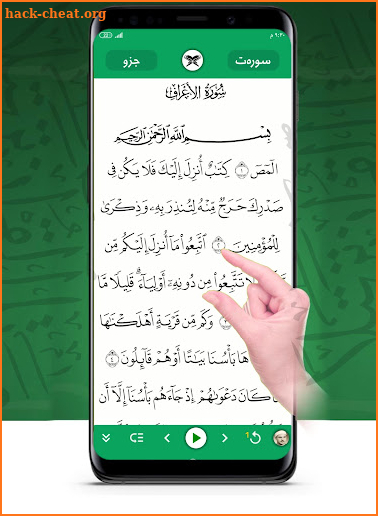 hack-cheat.org
٩:٣٠ م
سورەت جزو
سُورَةُ الأَعۡرَافِ
بِسۡمِ ٱللَّهِ ٱلرَّحۡمَٰنِ ٱلرَّحِيمِ
الٓمٓصٓ ١ كِتَٰبٌ أُنزِلَ إِلَيۡكَ فَلَا يَكُن فِي
صَدۡرِكَ حَرَجٞ مِّنۡهُ لِتُنذِرَ بِهِۦ وَذِكۡرَىٰ
لِلۡمُؤۡمِنِينَ ٢ ٱتَّبِعُواْ مَآ أُنزِلَ إِلَيۡكُم مِّن
لَا تَتَّبِعُواْ مِن دُونِهِۦٓ أَوۡلِيَآءَۗ قَلِيلٗا مَّا
وَكَم مِّن قَرۡيَةٍ أَهۡلَكۡنَٰهَا
هَا بَأۡسُنَا بَيَٰتًا أَوۡ هُمۡ قَآئِلُونَ ٤
كَانَ دَعۡوَىٰهُمۡ إِذۡ جَآءَهُم بَأۡسُنَآ إِلَّآ أَن
1
hack-cheat.org